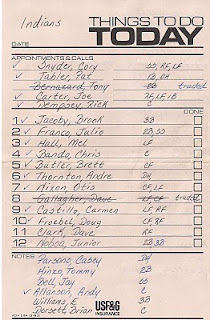 Indians
THINGS TO DO
TODAY
DATE
APPOINTMENTS & CALLS
✓ Snyder, Cory SS, RF, LF
✓ Tabler, Pat 1B, DH
Bernazard, Tony 2B traded
✓ Carter, Joe RF, LF, 1B
✓ Dempsey, Rick C
DONE
1 ✓ Jacoby, Brook 3B
2 ✓ Franco, Julio 2B, SS
3 ✓ Hall, Mel LF
4 ✓ Bando, Chris C
5 ✓ Butler, Brett CF
6 ✓ Thornton, Andre DH
7 ✓ Nixon, Otis CF, LF
8 Gallagher, Dave traded
9 ✓ Castillo, Carmen
10 ✓ Frobel, Doug
11 Clark, Dave RF
12 ✓ Noboa, Junior 2B, SS
NOTES
Parsons, Casey
Hinzo, Tommy 2B
Bell, Jay SS
✓ Allanson, Andy C
Williams, E 3B
Dorsett, Brian C
USF&G
INSURANCE